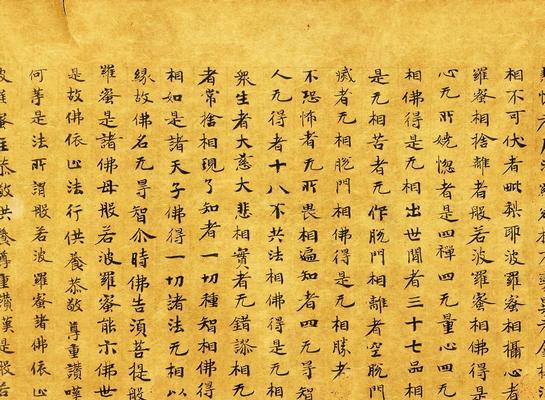 相不可伏者毗梨耶波羅蜜相攝心者
羅蜜相捨離者般若波羅蜜相佛得是
心无所嬈惱者是四禪四无量心四无
相佛得是无相出世間者三十七品相
是无相苦者无作脫門相離者空脫門
滅者无相脫門相佛得是无相勝者
不恐怖者无所畏相遍知者四无㝵智
人无得者十八不共法相佛得是无相
眾生者大慈大悲相實者无錯謬相无
者常捨相現了知者一切種智相佛得
相如是諸天子佛得一切諸法无相以
緣故佛名无㝵智尒時佛告須菩提般
羅蜜是諸佛母般若波羅蜜能示佛世
是故佛依止法行供養恭敬尊重讚嘆
何等是法所謂般若波羅蜜諸佛依止
波羅蜜住恭敬供養尊重讚嘆是般若